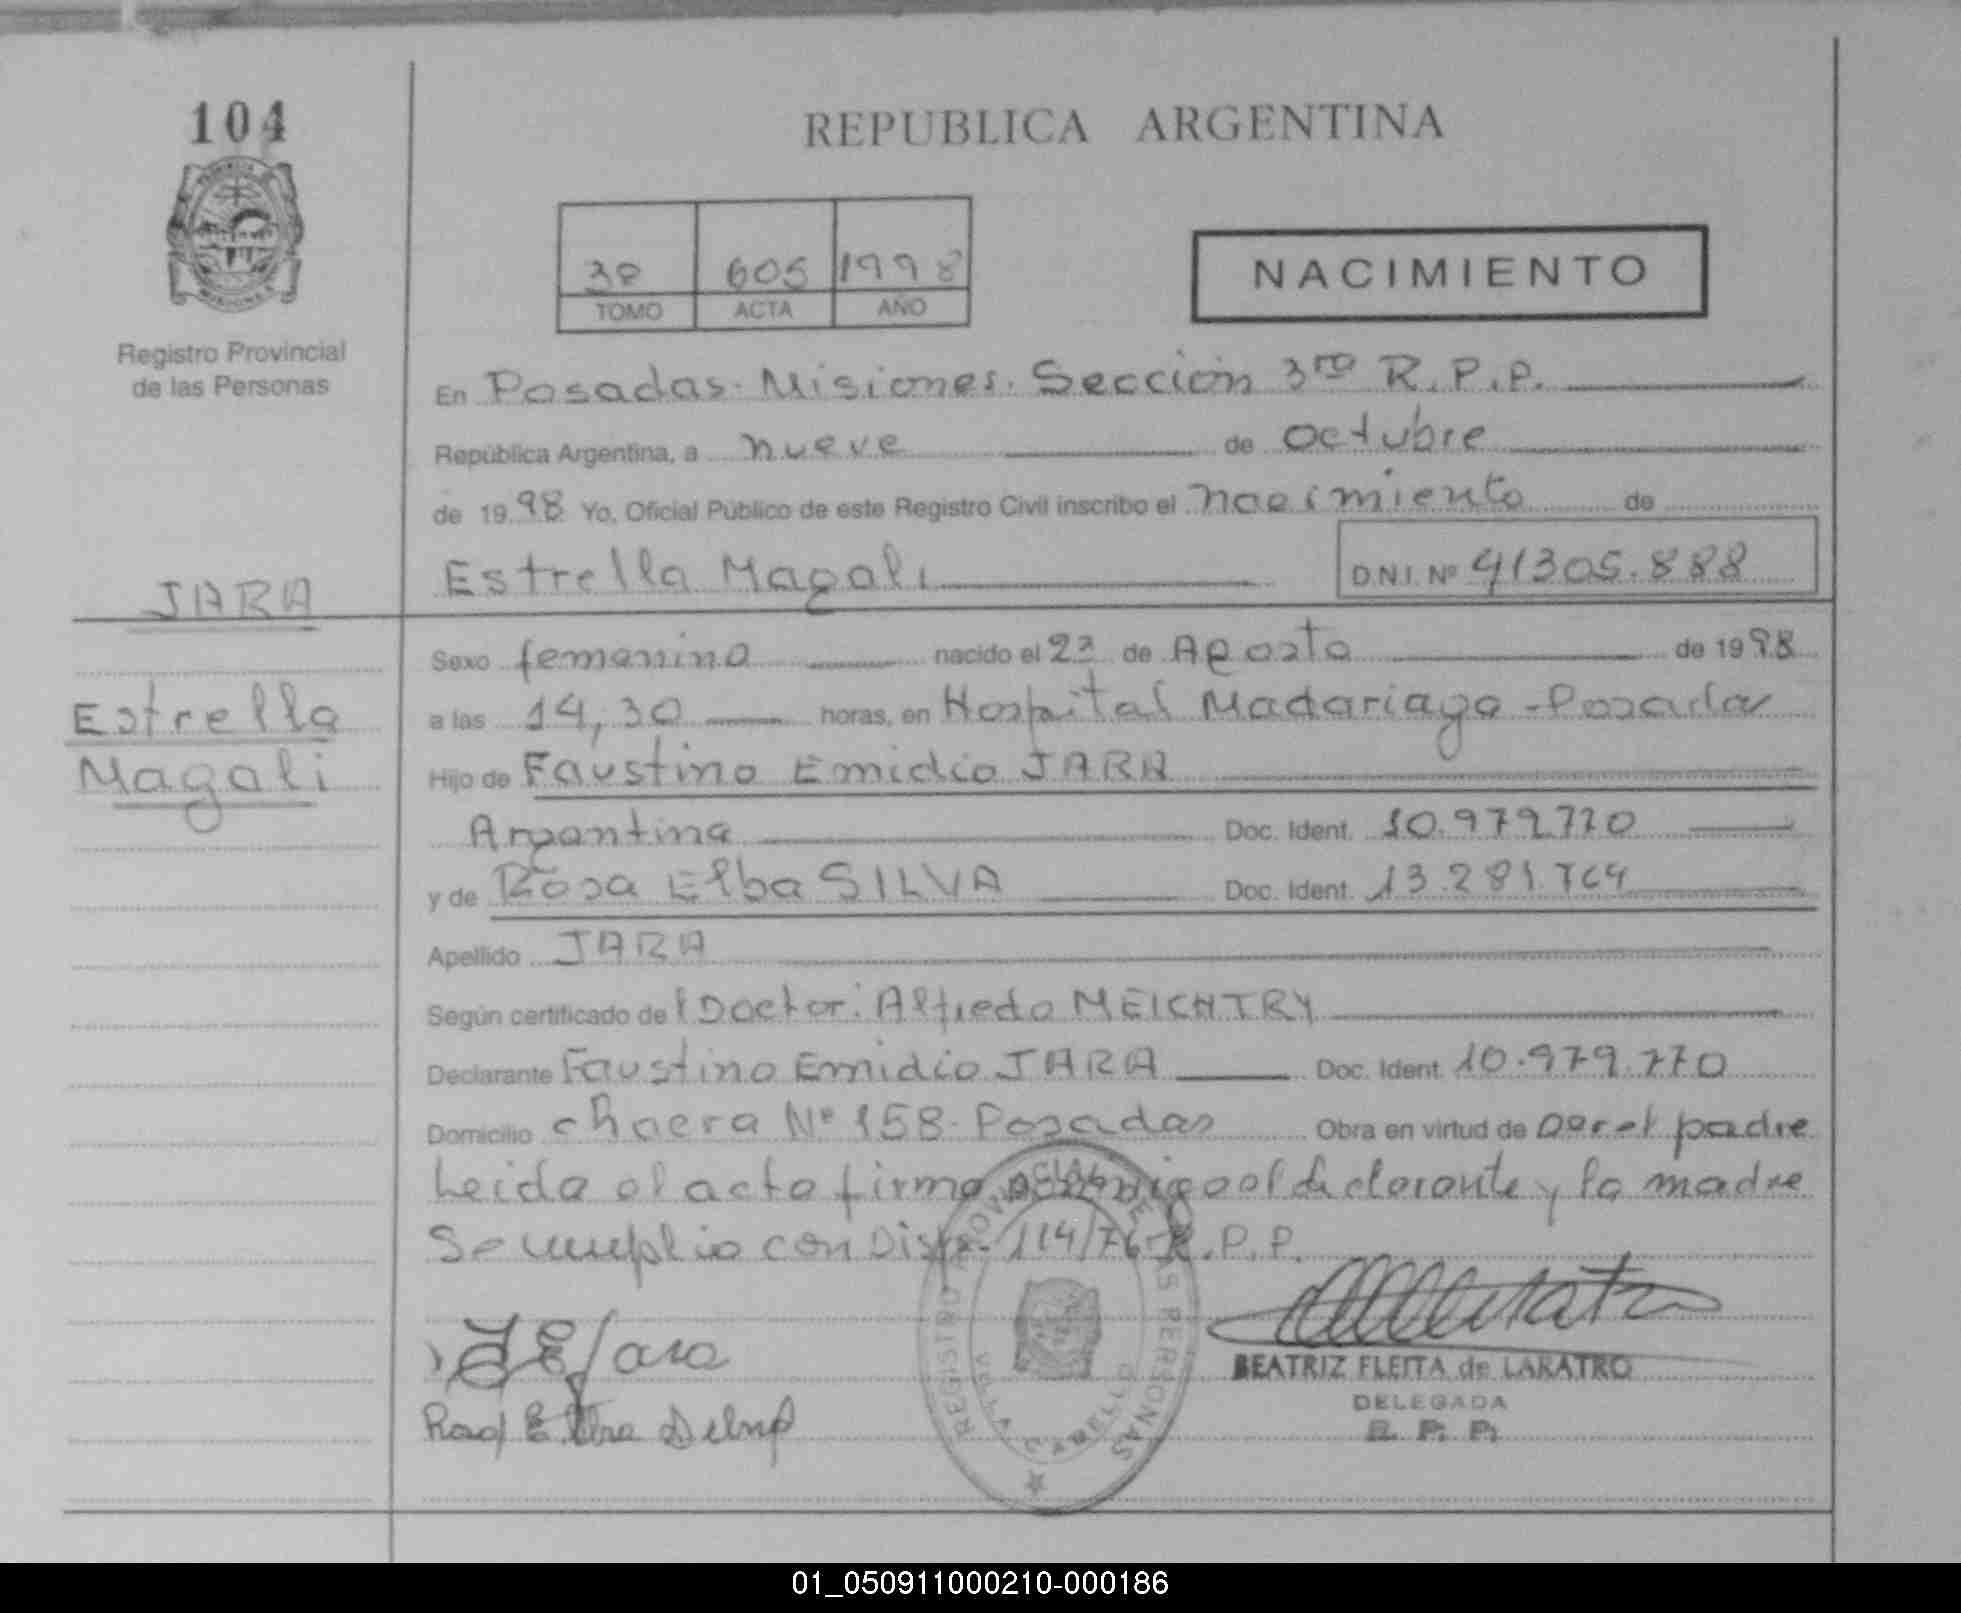 104
Registro Provincial
de las Personas
JARA
Estrella
Magali
REPUBLICA ARGENTINA
3º 605 1998
TOMO ACTA AÑO
NACIMIENTO
En Posadas. Misiones. Sección 3ra R.P.P.
República Argentina, a nueve de octubre
de 1998 Yo, Oficial Público de este Registro Civil inscribo el nacimiento de
Estrella Magali D.N.I. Nº 41305.888
Sexo femenino nacido el de Agosto de 1998
a las 14,30 horas, en Hospital Madariaga - Posadas
Hijo de Faustino Emidio JARA
Argentina Doc. Ident. 10.979.770
y de Rosa Elba SILVA Doc. Ident. 13.281.764
Apellido JARA
Según certificado del Doctor: Alfredo MEICHTRY
Declarante Faustino Emidio JARA Doc. Ident. 10.979.770
Domicilio chacra Nº 158. Posadas Obra en virtud de ser el padre
Leida el acta firma conmigo el declarante y la madre
Se cumplio con Disp. 114/76 R.P.P.
REGISTRO PROVINCIAL DE LAS PERSONAS
VILLA CABELLO
BEATRIZ FLEITA de LARATRO
DELEGADA
R. P. P.
01_050911000210-000186